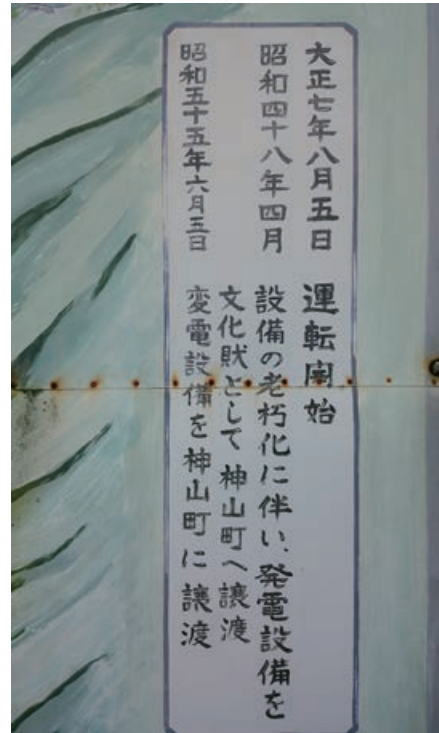 大正七年八月五日 運転開始
昭和四十八年四月 設備の老朽化に伴い、発電設備を
文化財として神山町へ譲渡
昭和五十五年六月五日 変電設備を神山町に譲渡